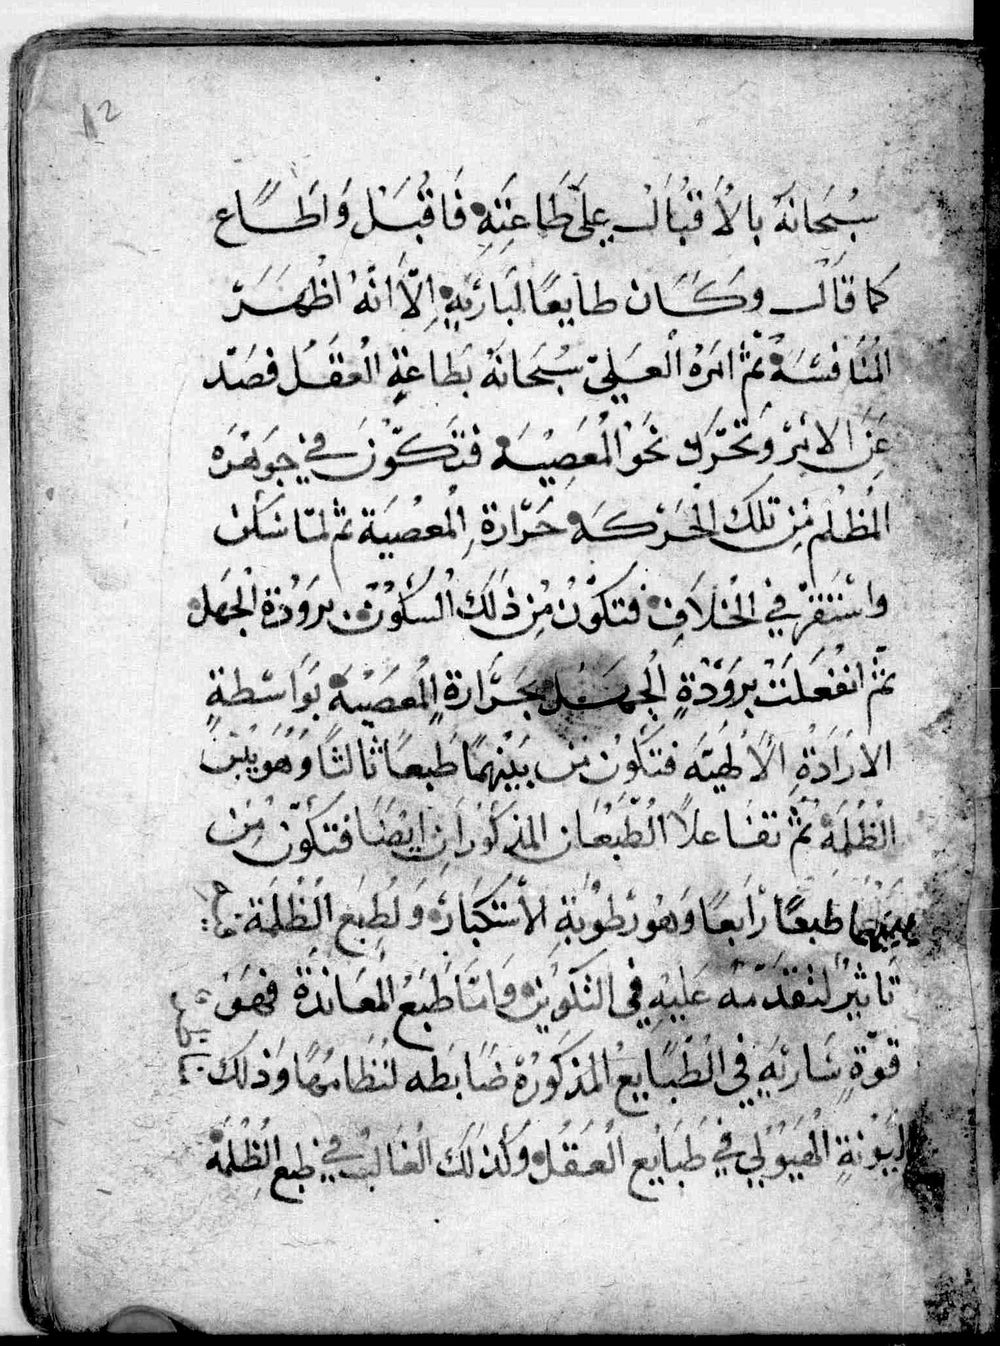 12
سُبْحَانَهُ بالأقبَال عِلَى طَاعِتَهِ فَاقْبَل وَاطَاع
كما قَال وَكَان طايعًا لبَاريَهِ اِلّا انّهُ اظْهَرَ
المُنَافسَة ثُمّ امَرَهُ العَلي سُبْحَانهُ بَطَاعَةِ العَقل فصَدّ
عَن الامرْ وَتحَرّك نَحَو المْعَصِيَة فتَكَوّن في جَوهَره
المظْلم مِن تلكَ الحَرَكه حَرَارة المعْصيَة ثم لمّا سَكن
واسْتَقرّ في الخلافِ فتكَوّن مِن ذلكَ السكُون بروَدْة الجَهل
ثمّ انفعَلتْ بروَدْةِ الجهل بحَرَارةِ المْعَصيَة بَوَاسْطةِ
الارَادَةِ الالهيّه فتكَوّن مِن بَيْنِهمَا طَبعَا ثالثًا وَهُوَ يبْسَ
الظُلمَة ثمّ تفَاعلا الطّبْعَان المذكوُرَان ايضَا فتكَوّن مِن
بينهمَا طَبعًا رَابعًا وَهُوَ رطوُبةِ الاسْتكبَار وَلطِبَع الظُلمَة
تَاثيرُ لتقدّمَهُ عَليْهِ في التكوِين وَامّا طَبْع المعَاندَة فهَوَ
قوّةٍ سَاريَهِ في الطّبَايع المذكوُرة ضَابَطه لنظَامهَا وَذلك
ليُوْنةِ الهَيوُلي في طَبَايع العَقل وَكذلك الغَالب في طبع الظُلمَة